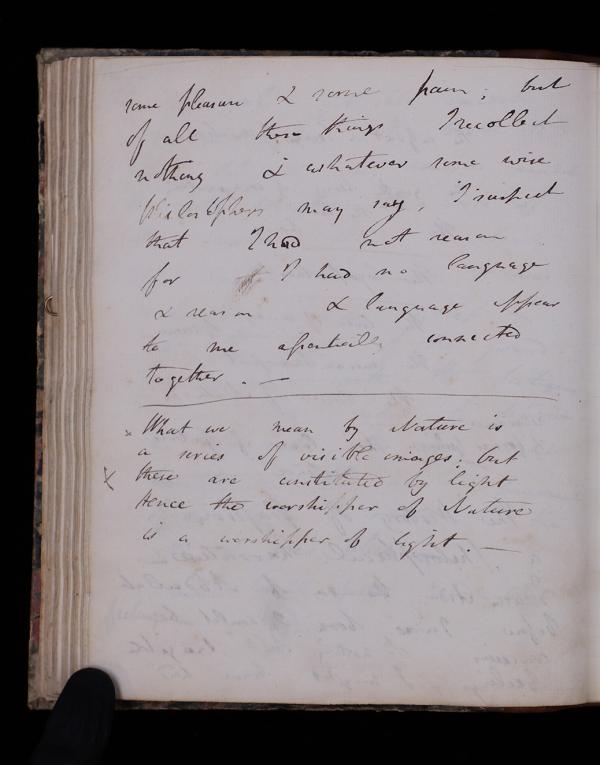 some pleasure & some pain; but
of all these things I recollect
nothing & whatever some wise
Philosophers may say, I suspect
that I had not reason
for I had no language
& reason & language appear
to me essentially connected
together. —
x What we mean by Nature is
a series of visible images; but
x these are constituted by light
Hence the worshipper of Nature
is a worshipper of light. —